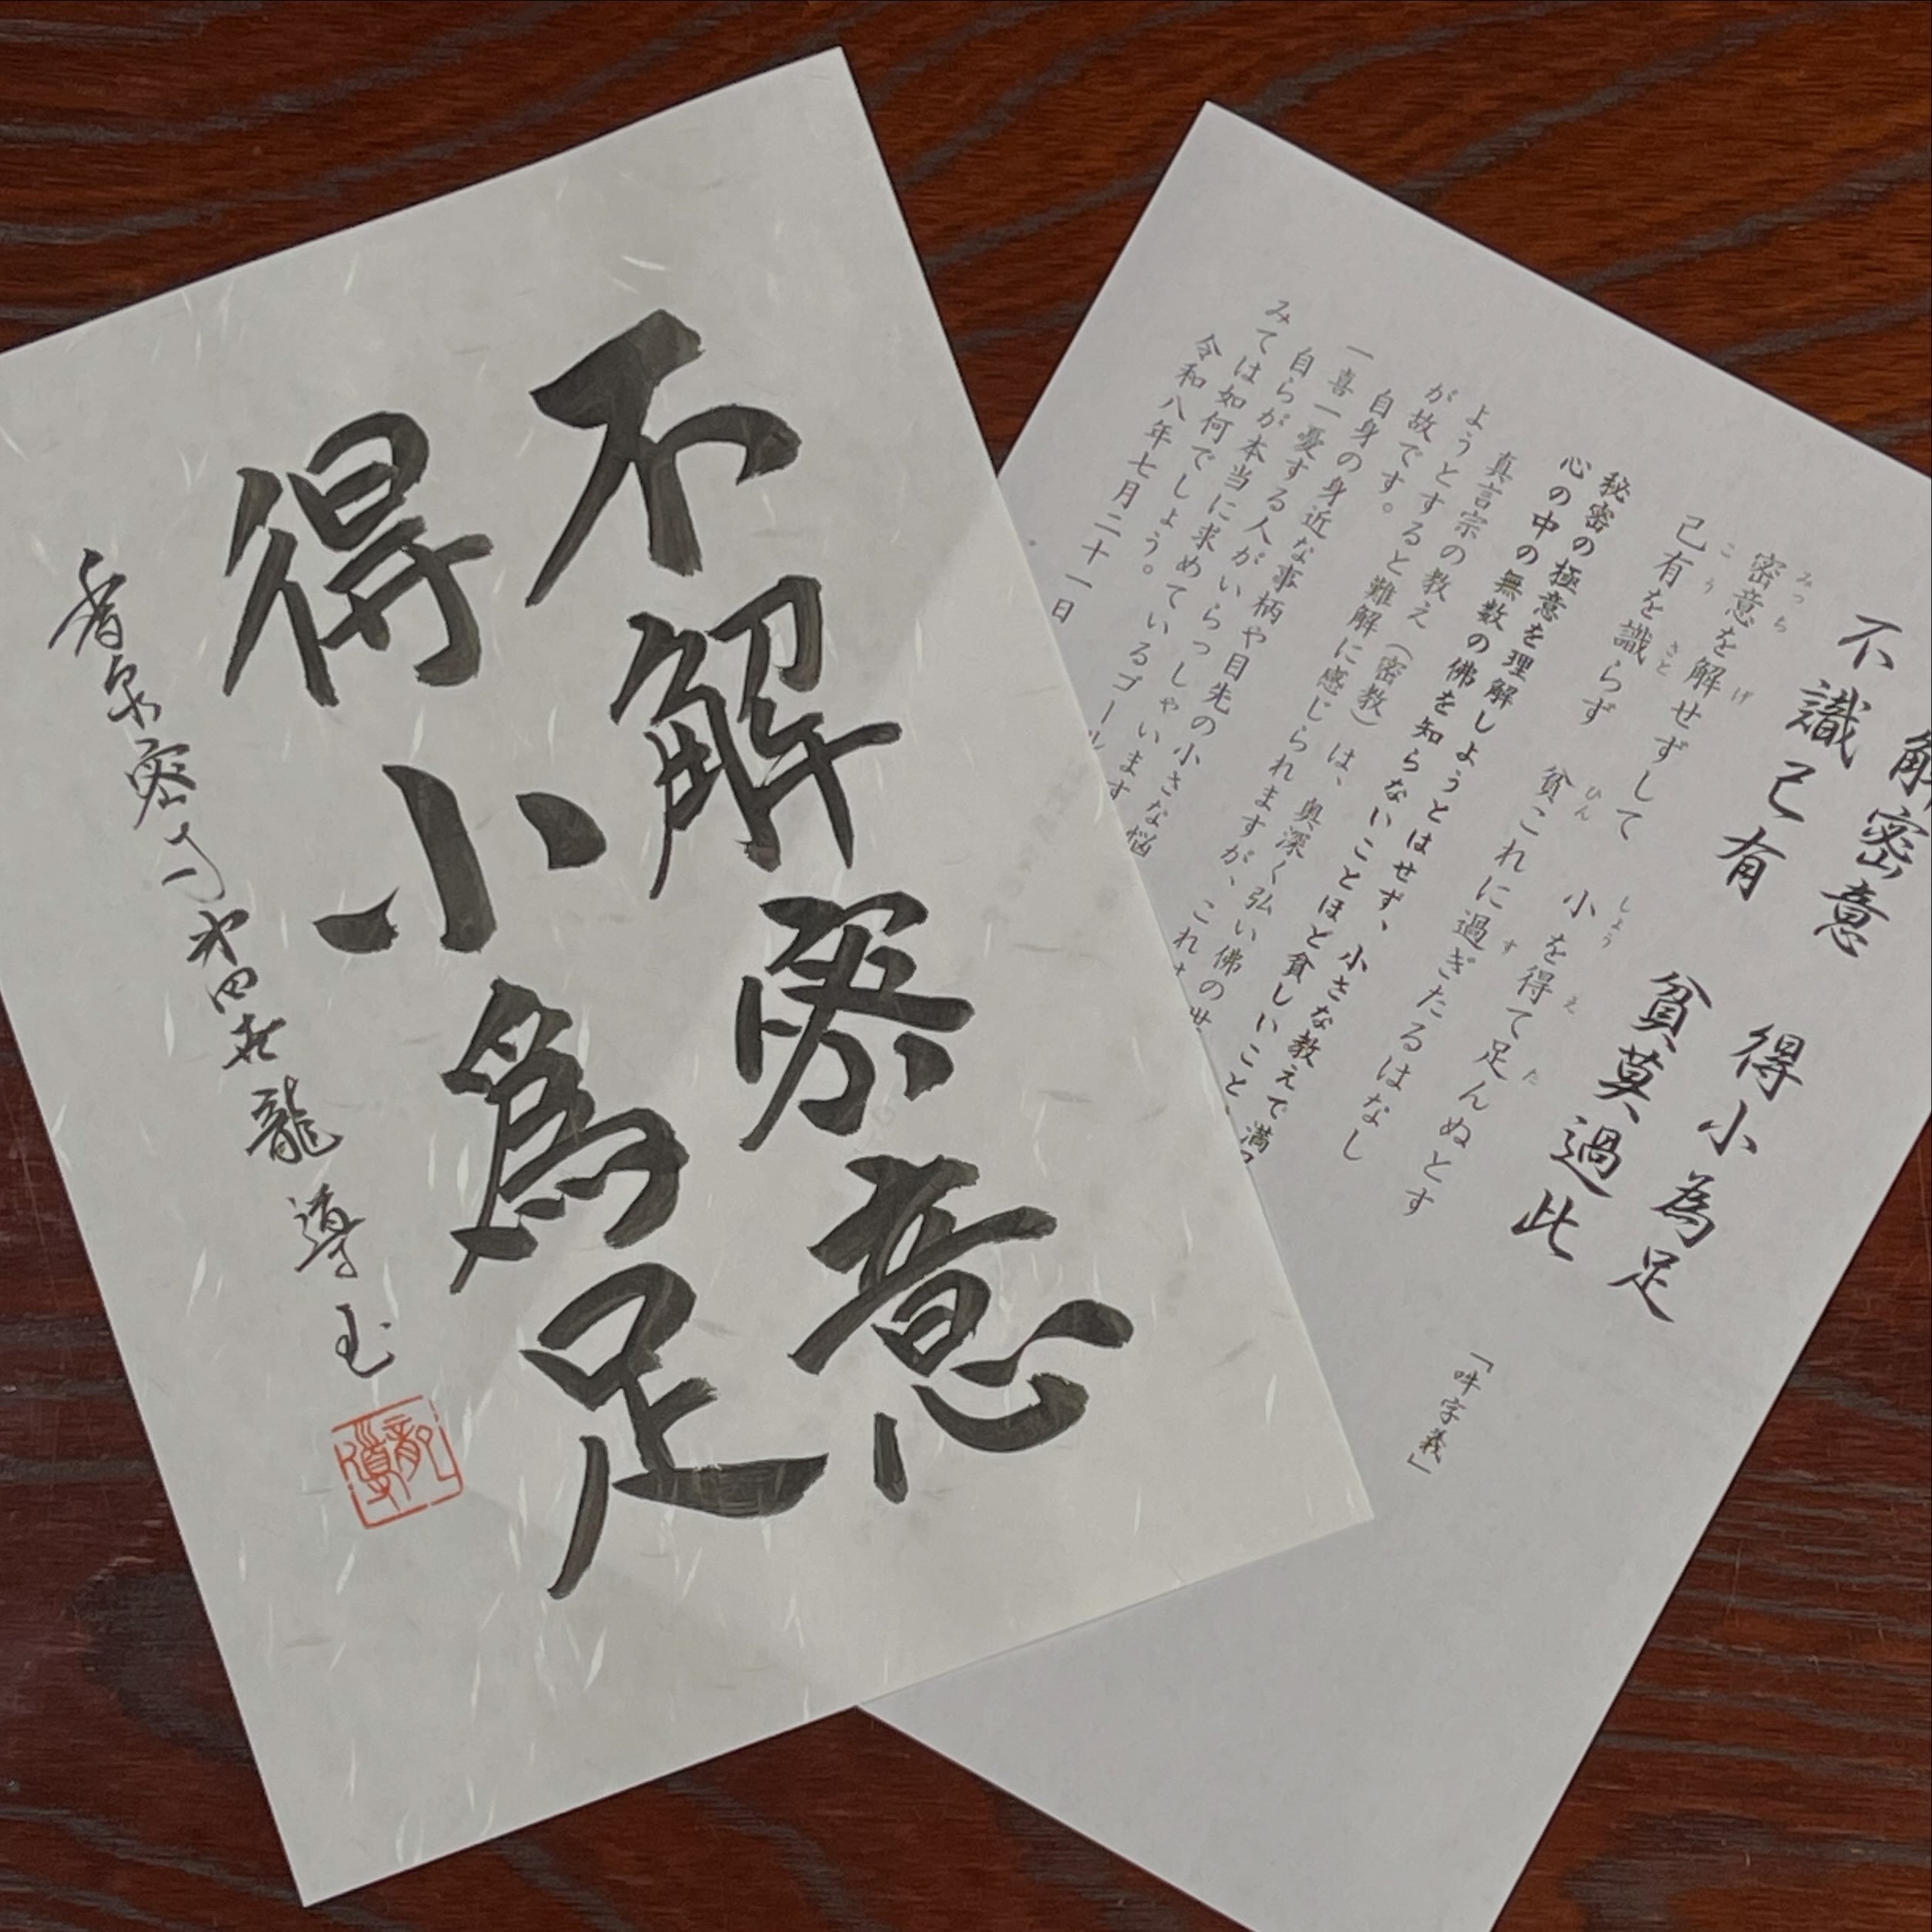 不解密意
得小為足
龍導
解密意　得小為足
不識己有　貧莫過此
「吽字義」
密意を解せずして　小を得て足んぬとす
己有を識らず　貧これに過ぎたるはなし
秘密の極意を理解しようとはせず、小さな教えで満
心の中の無数の佛を知らないことほど貧しいこと
真言宗の教え（密教）は、奥深く弘い佛の
ようとすると難解に感じられますが、これ
が故です。
自身の身近な事柄や目先の小さな悩
一喜一憂する人がいらっしゃいます
自らが本当に求めているゴール
みては如何でしょう。
令和八年七月二十一日